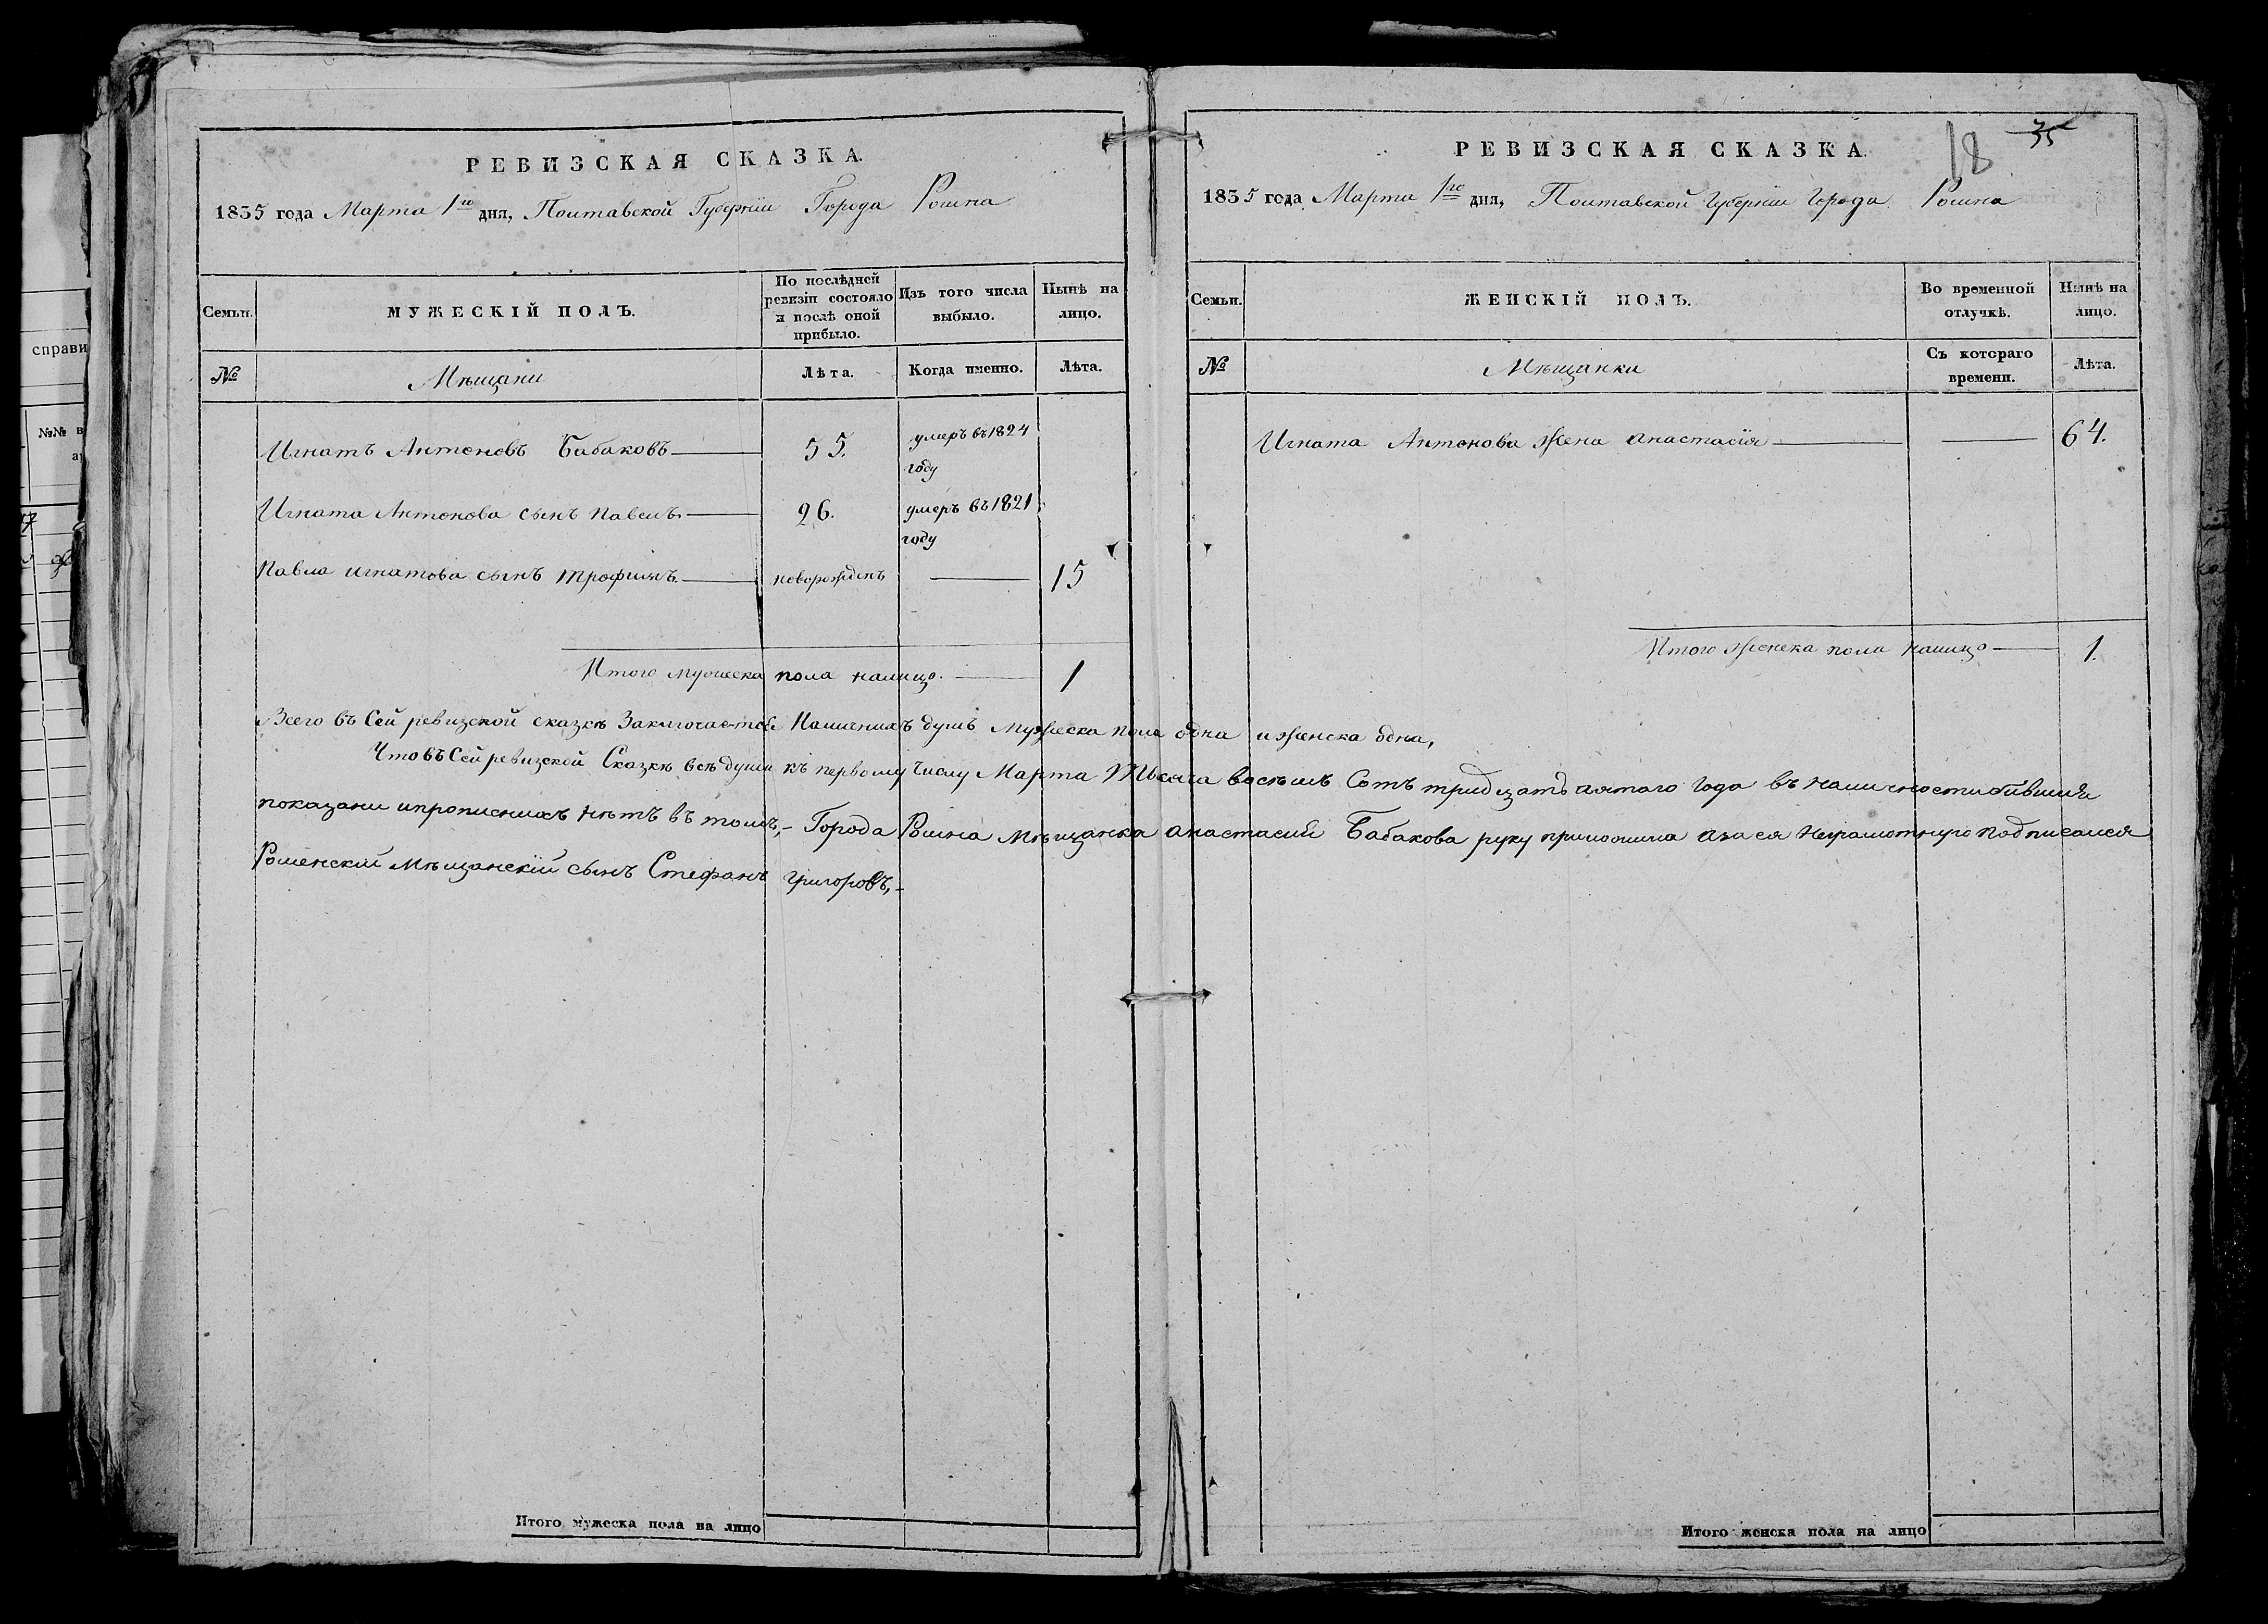 РЕВИЗСКАЯ СКАЗКА.
1835 года Марта 1го дня, Полтавской Губерніи Города Ромна
Семьи.
МУЖЕСКІЙ ПОЛЪ.
По послѣдней ревизіи состояло и послѣ оной прибыло.
Изъ того числа выбыло.
Нынѣ на лицо.
№
Мѣщани
Лѣта.
Когда именно.
Лѣта.
Игнатъ Антоновъ Бабаковъ 55. умеръ въ 1824
году
Игната Антонова сынъ Павелъ. 26. умеръ въ 1821
году
Павла игнатова сынъ трофимъ. новорожденъ 15
Итого мужеска пола налицо. 1
Итого мужеска пола на лицо
РЕВИЗСКАЯ СКАЗКА.
18
35
1835 года Марта 1го дня, Полтавской Губерніи Города Ромна
Семьи.
ЖЕНСКІЙ ПОЛЪ.
Во временной отлучкѣ.
Нынѣ на лицо.
№
Мѣщанки
Съ котораго времени.
Лѣта.
Игната Антонова жена анастасія 64.
Итого женска пола налицо 1.
Всего въ Сей ревизской сказкѣ Заключается Наличнихъ душъ мужеска пола одна и женска одна,
Что въ Сей ревизской Сказкѣ всѣ души къ первому числу Марта Тысяча восѣмъ Сотъ тридцать пятого Года въ наличности бившия
показани и прописнихъ нѣтъ въ томъ,- Города Ромна Мѣщанка анастасия Бабакова руку приложила а за ея неграмотную подписался
Роменский Мѣщанский сынъ Стефанъ григоровъ,-
Итого женска пола на лицо
справи
№№